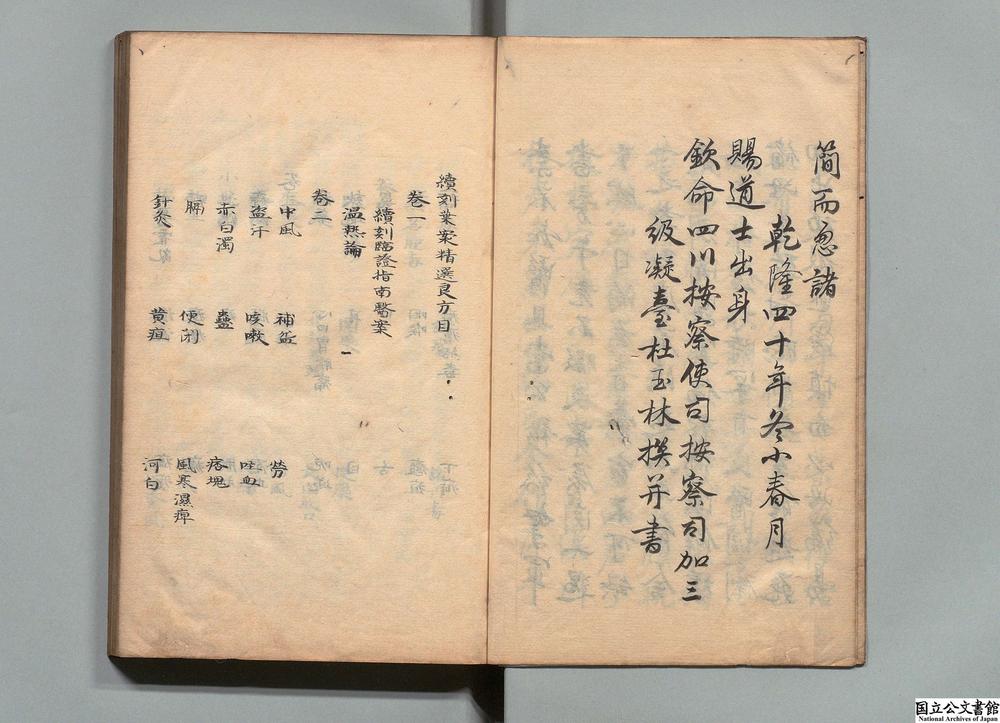 簡而忽諸
乾隆四十年冬小春月
賜道士出身
欽命四川按察使司按察司加三
級凝臺杜玉林撰并書
續刻葉案精選良方目
卷一
續刻臨證指南醫案
温热論
卷二
中風
補益
勞
盗汗
咳嗽
吐血
赤白濁
蠱
痞塊
膈
便閉
風寒濕痺
針灸
黄疸
河白
国立公文書館
National Archives of Japan